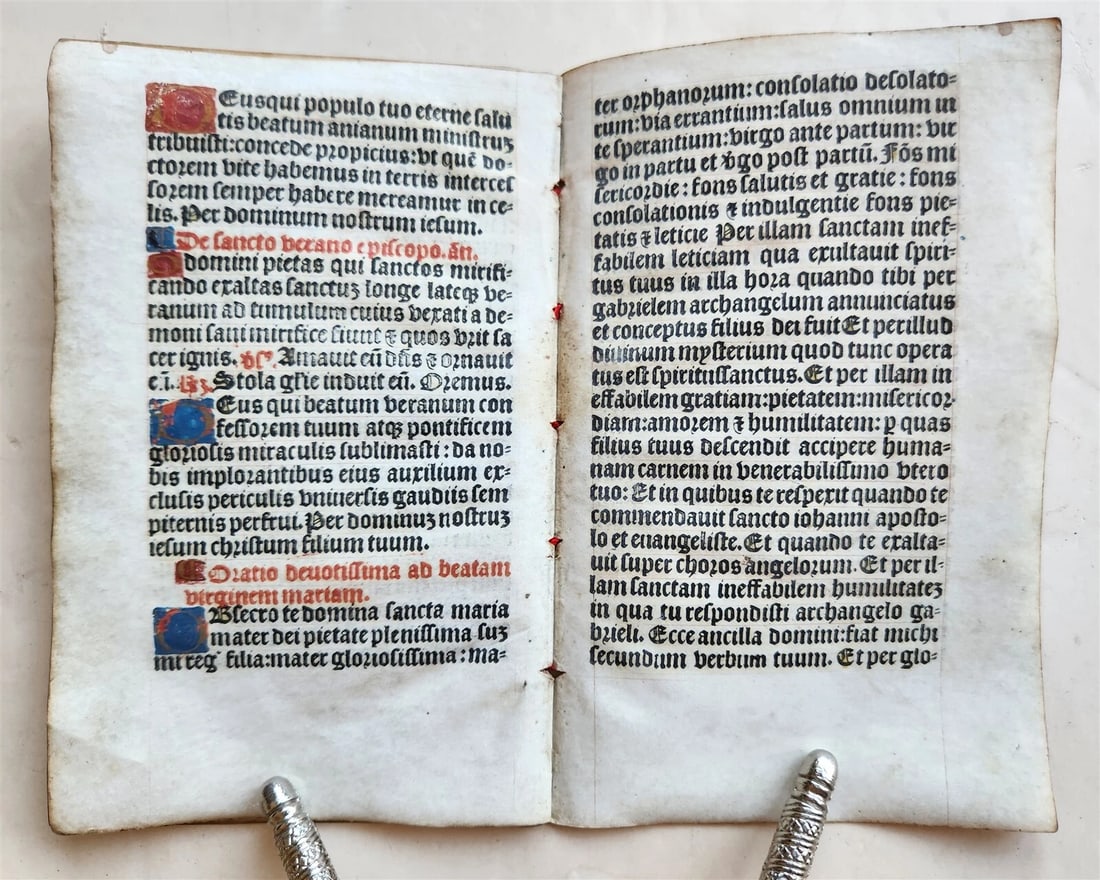 Eusqui populo tuo eterne salu
tis beatum anianum ministruʒ
tribuisti:concede propicius:vt quē do-
ctorem vite habemus in terris interces
sorem semper habere mereamur in ce-
lis. Per dominum nostrum iesum.
De sancto verano episcopo. añ.
O domini pietas qui sanctos mirifi-
cando exaltas sanctuʒ longe lateqʒ ve-
ranum ad tumulum cuius vexati a de-
moni saui mirifice siunt ⁊ quos vrit sa
cer ignis. Amauit eū dñs ⁊ ornauit
e.i. Stola glīe induit eū. Oremus.
DEus qui beatum veranum con
fessorem tuum atqʒ pontificem
gloriosis miraculis sublimasti : da no-
bis implorantibus eius auxilium ex-
clusis periculis vniuersis gaudiis sem
piternis perfrui. Per dominuʒ nostruʒ
iesum christum filium tuum.
Oratio deuotissima ad beatam
virginem mariam.
OBsecro te domina sancta maria
mater dei pietate plenissima suʒ
mi reg⁹ filia:mater gloriosissima : ma-
ter orphanorum: consolatio desolato-
rum: via errantium:salus omnium in
te sperantium: virgo ante partum: vir
go in partu et v̄go post partū. Fōs mi
sericordie : fons salutis et gratie : fons
consolationis ⁊ indulgentie fons pie-
tatis ⁊ leticie Per illam sanctam inef-
fabilem leticiam qua exultauit spiri-
tus tuus in illa hora quando tibi per
gabrielem archangelum annunciatus
et conceptus filius dei fuit Et per illud
diuinum mysterium quod tunc opera
tus est spiritussanctus. Et per illam in
effabilem gratiam:pietatem:misericor-
diam:amorem ⁊ humilitatem: ꝑ quas
filius tuus descendit accipere huma-
nam carnem in venerabilissimo vtero
tuo: Et in quibus te respexit quando te
commendauit sancto iohanni aposto-
lo et euangeliste. Et quando te exalta-
uit super choros angelorum. Et per il-
lam sanctam ineffabilem humilitateʒ
in qua tu respondisti archangelo ga-
brieli. Ecce ancilla domini:fiat michi
secundum verbum tuum. Et per glo-